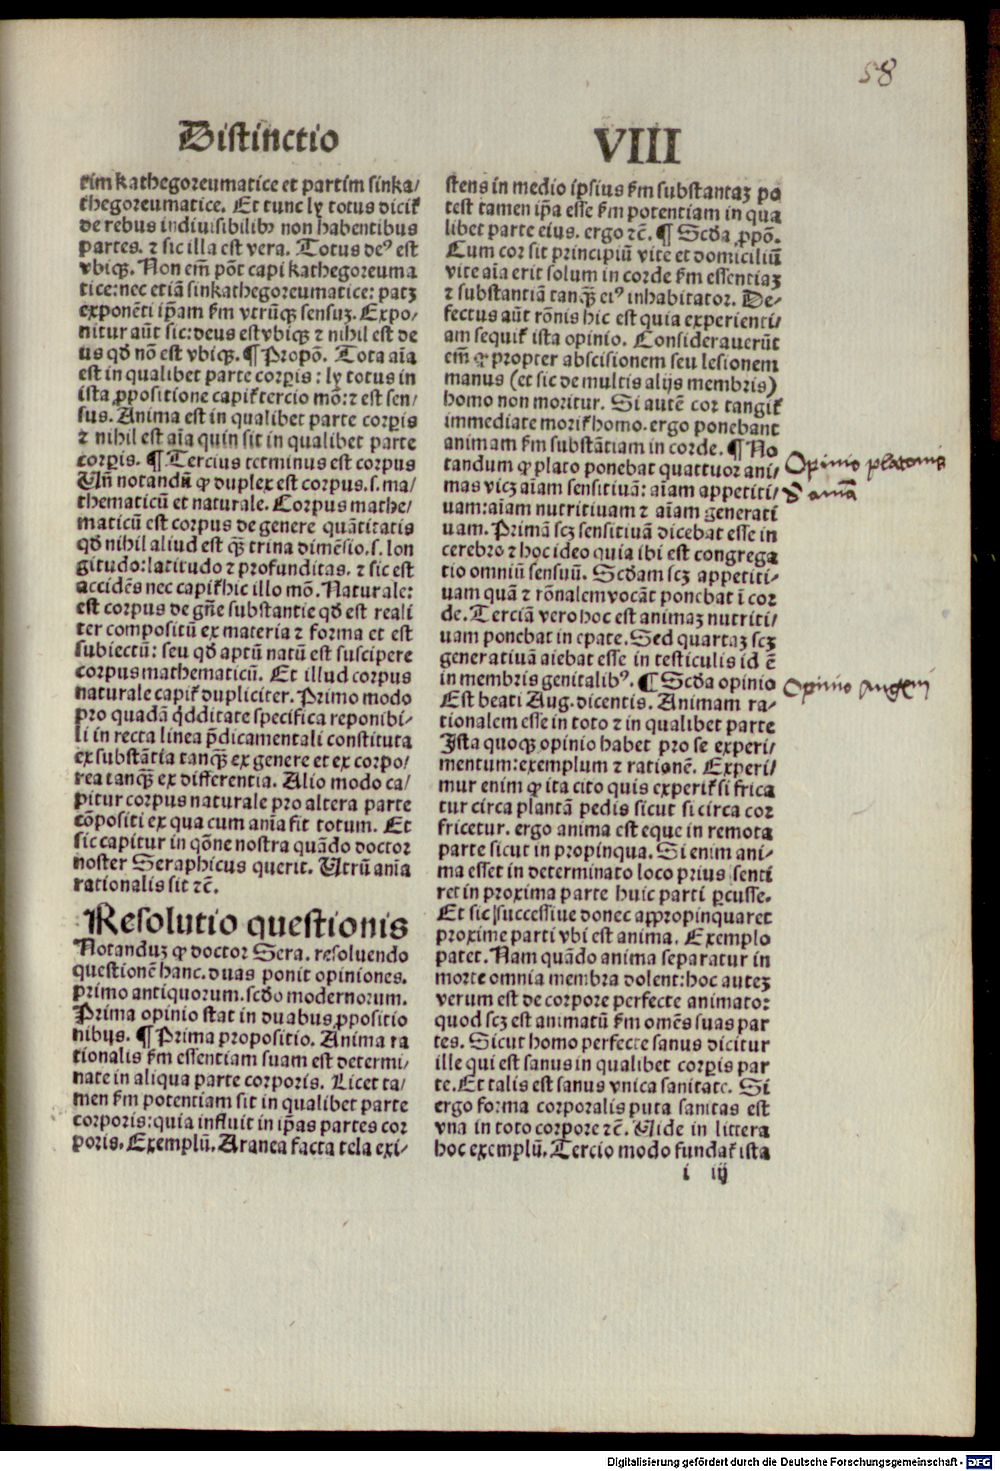 58
Distinctio VIII
tim kathegoreumatice et partim sinka/
thegoreumatice. Et tunc ly totus diciť
de rebus indiuisibilibꝫ non habentibus
partes. ⁊ sic illa est vera. Totus deꝰ est
vbiqꝫ. Non em̄ pōt capi kathegoreuma
tice: nec etiā sinkathegoreumatice: patꝫ
exponēti ip̄am ẜm vtrūqꝫ sensuꝫ. Expo/
nitur aūt sic: deus est vbiqꝫ ⁊ nihil est de
us qď nō est vbiqꝫ. ¶ Propō. Tota aīa
est in qualibet parte corꝑis: ly totus in
ista ꝓpositione capiť tercio mō: ⁊ est sen/
sus. Anima est in qualibet parte corꝑis
⁊ nihil est aīa quin sit in qualibet parte
corꝑis. ¶ Tercius terminus est corpus
Vn̄ notandū ꝙ duplex est corpus. s. ma/
thematicū et naturale. Corpus mathe/
maticū est corpus de genere quātitatis
qď nihil aliud est qꝫ̄ trina dimēsio. s. lon
gitudo: latitudo ⁊ profunditas. ⁊ sic est
accidēs nec capiť hic illo mō. Naturale:
est corpus de gn̄e substantie qď est reali
ter compositū ex materia ⁊ forma et est
subiectū: seu qď aptū natū est suscipere
corpus mathematicū. Et illud corpus
naturale capiť dupliciter. Primo modo
pro quadā q̇dditate specifica reponibi/
li in recta linea p̄dicamentali constituta
ex substātia tanqꝫ̄ ex genere et ex corpo/
rea tanqꝫ̄ ex differentia. Alio modo ca/
pitur corpus naturale pro altera parte
cōpositi ex qua cum anīa fit totum. Et
sic capitur in qōne nostra quādo doctor
noster Seraphicus querit. Vtrū anīa
rationalis sit ⁊c̄.
Resolutio questionis
Notanduꝫ ꝙ doctor Sera. resoluendo
questionē hanc. duas ponit opiniones.
primo antiquorum. scďo modernorum.
Prima opinio stat in duabus ꝓpositio
nibus. ¶ Prima propositio. Anima ra
tionalis ẜm essentiam suam est determi/
nate in aliqua parte corporis. Licet ta/
men ẜm potentiam sit in qualibet parte
corporis: quia influit in ip̄as partes cor
poris. Exemplū. Aranea facta tela exi/
stens in medio ipsius ẜm substantiaꝫ po
test tamen ip̄a esse ẜm potentiam in qua
libet parte eius. ergo ⁊c̄. ¶ Scďa ꝓpō.
Cum cor sit principiū vite et domiciliū
vite aīa erit solum in corde ẜm essentiaꝫ
⁊ substantiā tanqꝫ̄ eiꝰ inhabitator. De/
fectus aūt rōnis hic est quia experienti/
am sequiť ista opinio. Considerauerūt
em̄ ꝙ propter abscisionem seu lesionem
manus (et sic de multis alijs membris)
homo non moritur. Si autē cor tangiť
immediate moriť homo. ergo ponebant
animam ẜm substātiam in corde. ¶ No
tandum ꝙ plato ponebat quattuor ani/
mas vicꝫ aīam sensitiuā: aīam appetiti/
uam: aīam nutritiuam ⁊ aīam generati
uam. Primā scꝫ sensitiuā dicebat esse in
cerebro ⁊ hoc ideo quia ibi est congrega
tio omniū sensuū. Scďam scꝫ appetiti/
uam quā ⁊ rōnalem vocāt ponebat ī cor
de. Terciā vero hoc est animaꝫ nutriti/
uam ponebat in epate. Sed quartaꝫ scꝫ
generatiuā aiebat esse in testiculis id ē
in membris genitalibꝰ. ¶ Scďa opinio
Est beati Aug. dicentis. Animam ra/
tionalem esse in toto ⁊ in qualibet parte
Ista quoqꝫ opinio habet pro se experi/
mentum: exemplum ⁊ rationē. Experi/
mur enim ꝙ ita cito quis experiť si frica
tur circa plantā pedis sicut si circa cor
fricetur. ergo anima est eque in remota
parte sicut in propinqua. Si enim ani/
ma esset in determinato loco prius senti
ret in proxima parte huic parti ꝑcusse.
Et sic successiue donec appropinquaret
proxime parti vbi est anima. Exemplo
patet. Nam quādo anima separatur in
morte omnia membra dolent: hoc auteꝫ
verum est de corpore perfecte animato:
quod scꝫ est animatū ẜm omēs suas par
tes. Sicut homo perfecte sanus dicitur
ille qui est sanus in qualibet corꝑis par
te. Et talis est sanus vnica sanitate. Si
ergo forma corporalis puta sanitas est
vna in toto corpore ⁊c̄. Vide in littera
hoc exemplū. Tercio modo fundať ista
i iij
Opinio platonis
d aīma
Opinio Augꝰni
Digitalisierung gefördert durch die Deutsche Forschungsgemeinschaft - DFG